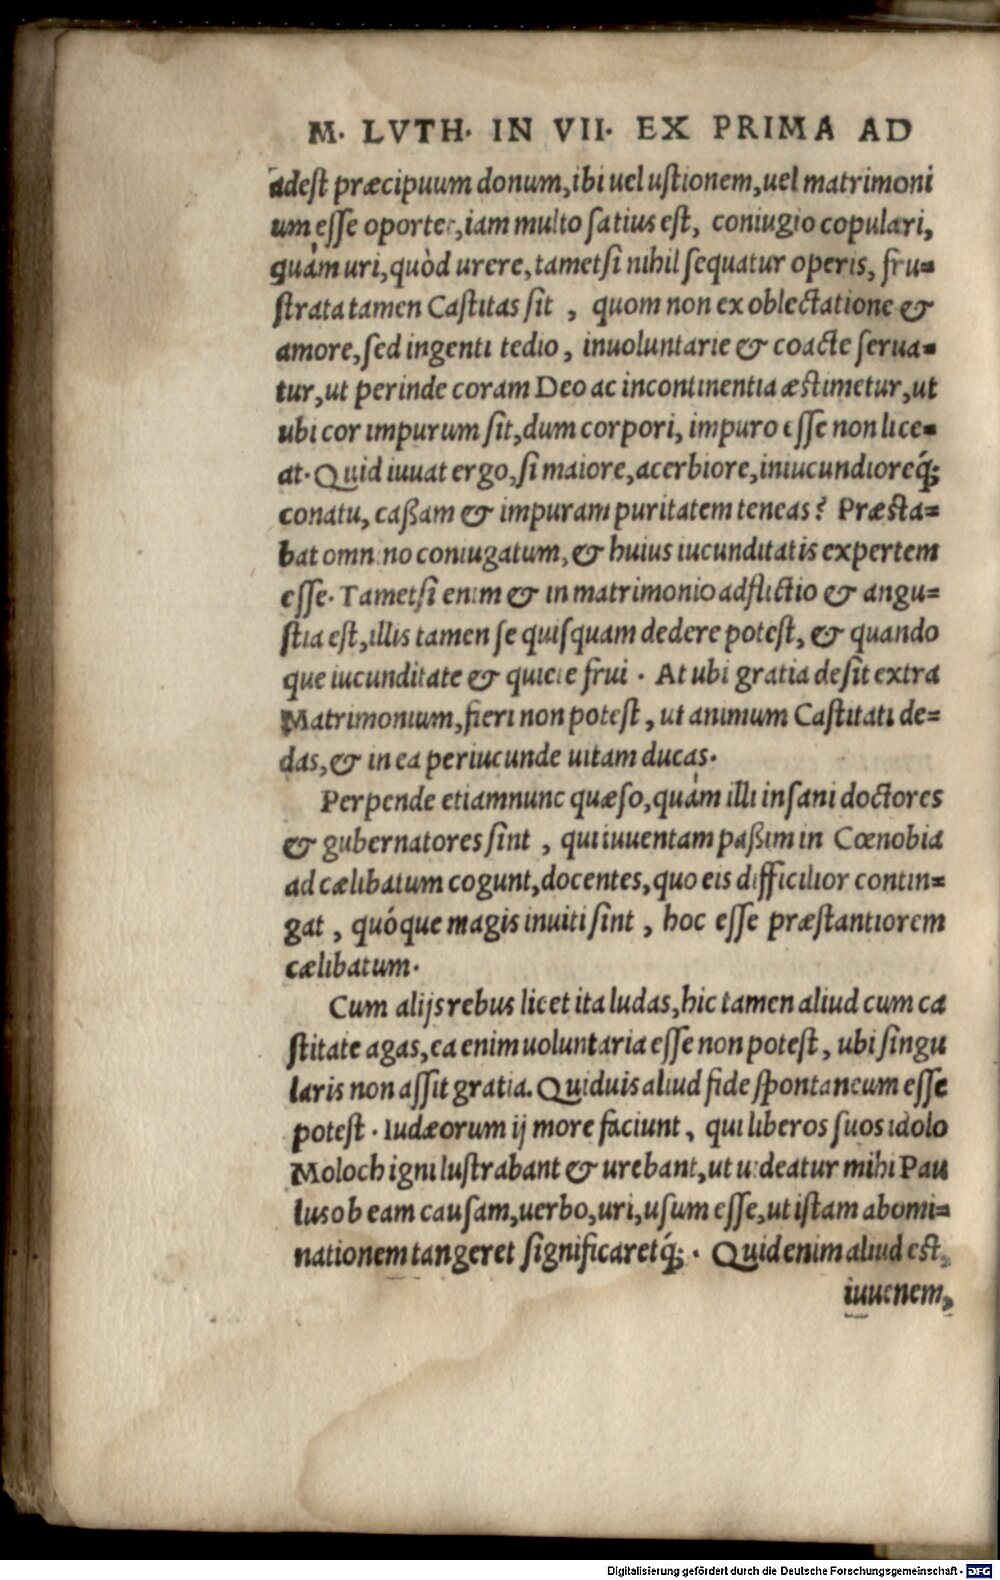 M. LVTH. IN VII. EX PRIMA AD
adest præcipuum donum, ibi uel ustionem, uel matrimoni
um esse oportet, iam multo satius est, coniugio copulari,
quàm uri, quòd urere, tametsi nihil sequatur operis, fru=
strata tamen Castitas sit, quom non ex oblectatione &
amore, sed ingenti tedio, inuoluntarie & coacte serua=
tur, ut perinde coram Deo ac incontinentia æstimetur, ut
ubi cor impurum sit, dum corpori, impuro esse non lice=
at. Quid iuuat ergo, si maiore, acerbiore, iniucundioreq́;
conatu, caßam & impuram puritatem teneas? Præsta=
bat omnino coniugatum, & huius iucunditatis expertem
esse. Tametsi enim & in matrimonio adflictio & angu=
stia est, illis tamen se quisquam dedere potest, & quando
que iucunditate & quiete frui. At ubi gratia desit extra
Matrimonium, fieri non potest, ut animum Castitati de=
das, & in ea periucunde uitam ducas.
Perpende etiamnunc quæso, quàm illi insani doctores
& gubernatores sint, qui iuuentam paßim in Cœnobia
ad cælibatum cogunt, docentes, quo eis difficilior contin=
gat, quóque magis inuiti sint, hoc esse præstantiorem
cælibatum.
Cum alijs rebus licet ita ludas, hic tamen aliud cum ca
stitate agas, ea enim uoluntaria esse non potest, ubi singu
laris non assit gratia. Quiduis aliud fide spontaneum esse
potest. Iudæorum ij more faciunt, qui liberos suos idolo
Moloch igni lustrabant & urebant, ut uideatur mihi Pau
lus ob eam causam, uerbo, uri, usum esse, ut istam abomi=
nationem tangeret significaretq́;. Quid enim aliud est,
iuuenem,
Digitalisierung gefördert durch die Deutsche Forschungsgemeinschaft - DFG